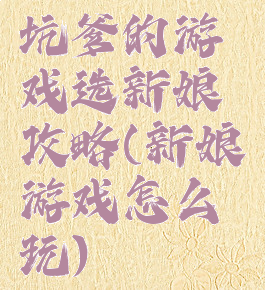 坑爹的游
戏选新娘
攻略(新娘
游戏怎么
玩)